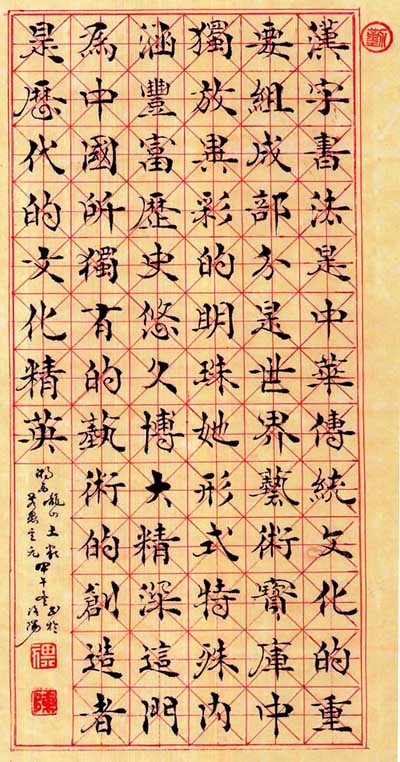 漢字書法是中華傳統文化的重
要組成部分是世界藝術寶庫中
獨放異彩的明珠她形式特殊内
涵豐富歷史悠久博大精深這門
為中國所獨有的藝術的創造者
是歷代的文化精英
甲午